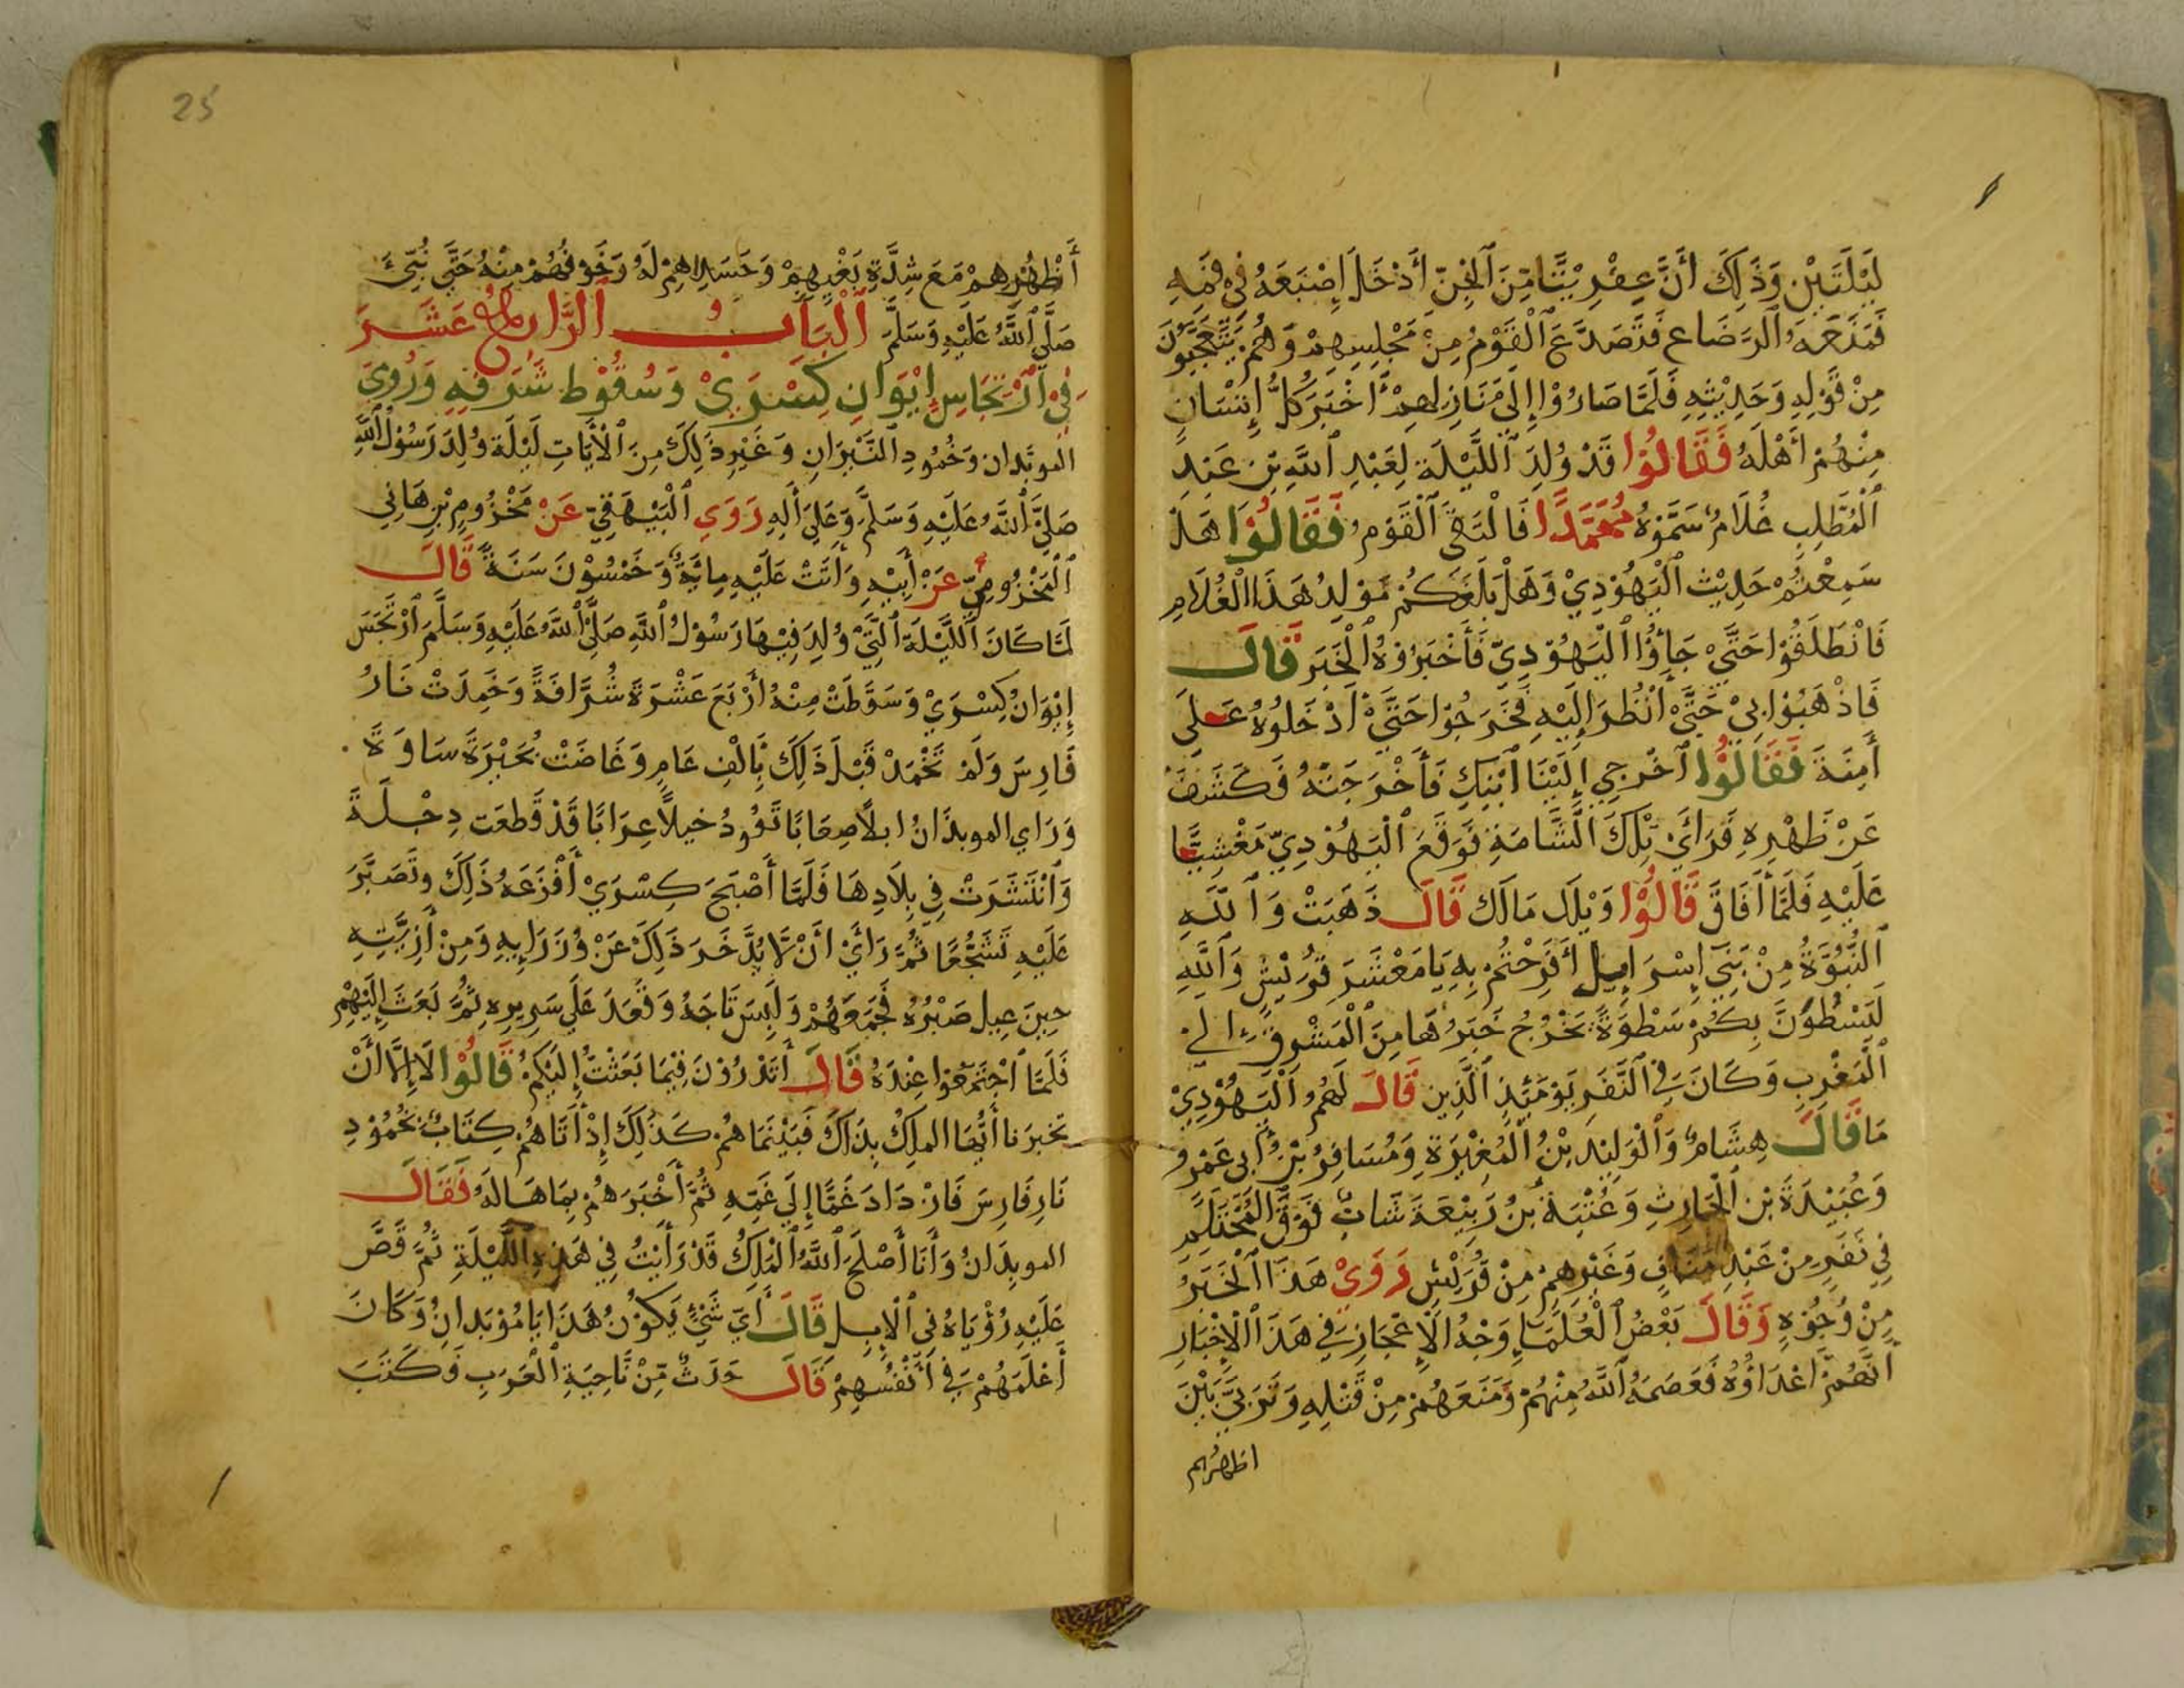 لَيْلَتَيْنِ وَذَلِكَ أَنَّ عِفْرِيْتًا مِنَ ٱلْجِنِّ أَدْخَلَ إِصْبَعَهُ فِيْ فَمِهِ
فَمَنَعَهُ ٱلرَّضَاعِ فَتَصَدَّعَ ٱلْقَوْمُ مِنْ مَجْلِسِهِمْ وَهُمْ يَتَعَجَّبُوْنَ
مِنْ قَوْلِهِ وَحَدِيْثِهِ فَلَمَّا صَارُوْا إِلَى مَنَازِلِهِمْ أَخْبَرَ كُلُّ إِنْسَانٍ
مِنْهُمْ أَهْلَهُ فَقَالُوْا قَدْ وُلِدَ ٱللَّيْلَةَ لِعَبْدِ ٱللَّهِ بْنِ عَبْدِ
ٱلْمُطَّلِبِ غُلَامٌ سَمَّوْهُ مُحَمَّدًا فَالْتَقَى ٱلْقَوْمُ فَقَالُوْا هَلْ
سَمِعْتُمْ حَدِيْثَ ٱلْيَهُوْدِيِّ وَهَلْ بَلَغَكُمْ مَوْلِدُ هَذَا ٱلْغُلَامِ
فَانْطَلَقُوْا حَتَّى جَاؤُا ٱلْيَهُوْدِيَّ فَأَخْبَرُوْهُ ٱلْخَبَرَ قَالَ
فَاذْهَبُوْا بِيْ حَتَّى أَنْظُرَ إِلَيْهِ فَخَرَجُوْا حَتَّى أَدْخَلُوْهُ عَلَى
أَمِنَةَ فَقَالُوْا ٱخْرِجِي إِلَيْنَا ٱبْنَكِ فَأَخْرَجَتْهُ فَكَشَفَ
عَنْ ظَهْرِهِ فَرَأَى تِلْكَ ٱلشَّامَةِ فَوَقَعَ ٱلْيَهُوْدِيّ مَغْشِيًّا
عَلَيْهِ فَلَمَّا أَفَاقَ قَالُوْا وَيْلَكَ مَالَكَ قَالَ ذَهَبَتْ وَٱللَّهِ
ٱلنُّبُوَّةُ مِنْ بَنِي إِسْرَايِيلَ أَفَرِحْتُمْ بِهِ يَا مَعْشَرَ قُرَيْشٍ وَٱللَّهِ
لَيَسْطُوَنَّ بِكُمْ سَطْوَةً يَخْرُجُ خَبَرُهَا مِنَ ٱلْمَشْرِقِ الى
ٱلْمَغْرِبِ وَكَانَ فِي ٱلنَّفَرِ يَوْمَئِذٍ ٱلَّذِينَ قَالَ لَهُمُ ٱلْيَهُوْدِيّ
مَا قَالَ هِشَامٌ وَٱلْوَلِيْدُ بْنُ ٱلْمُغِيْرَةِ وَمُسَافِرُ بْنُ أَبِى عَمْرٍو
وَعُبَيْدَةَ بْنِ ٱلْحَارِثِ وَعُتْبَةُ بْنُ رَبِيْعَةَ شَابٌّ فَوْقَ ٱلْمُحْتَلِمِ
فِي نَفَرٍ مِنْ عَبْدِ مَنَافٍ وَغَيْرِهِمْ مِنْ قُرَيْشٍ رَوَىْ هَذَا ٱلْخَبَرُ
مِنْ وُجُوْهٍ وَقَالَ بَعْضُ ٱلْعُلَمَاءِ وَجْهُ ٱلْإِعْجَازِ فِي هَذَا ٱلْإِخْبَارِ
أَنَّهُمْ أَعْدَاؤُهُ فَعَصَمَهُ ٱللَّهُ مِنْهُمْ وَمَنَعَهُمْ مِنْ قَتْلِهِ وَتَرَبَّى بَيْنَ
اظهرهم
25
أَظْهُرِهِمْ مَعَ شِدَّةِ بَغْيِهِمْ وَحَسَدِهِمْ لَهُ وَخَوْفُهُمْ مِنْهُ حَتَّى نُبِّئَ
صَلَّى ٱللَّهُ عَلَيْهِ وَسَلَّمَ ٱلْبَابُ ٱلرَّابِعُ عَشَرَ
فِي ٱرْتِجَاسِ إِيْوَانِ كِسْرَىْ وَسُقُوْطِ شُرَفِهِ وَرُوْيَ
الموبَذان وَخُمُودِ ٱلنِّيْرَانِ وَغَيْرِ ذَلِكَ مِنَ ٱلْأَيَاتِ لَيْلَةَ وُلِدَ رَسُوْلُ ٱللَّهِ
صَلَّى ٱللَّهُ عَلَيْهِ وَسَلَّمَ وَعَلَى أَلِهِ رَوَى ٱلْبَيْهَقِيّ عَنْ مَخْزُومِ بْنِ هَانِي
ٱلْمَخْزُومِيّ عَنْ أَبِيْهِ وَأَتَتْ عَلَيْهِ مِائَةٌ وَخَمْسُوْنَ سَنَةً قَالَ
لَمَّا كَانَ ٱللَّيْلَةَ ٱلَّتِيْ وُلِدَ فِيْهَا رَسُوْلُ ٱللَّهِ صَلَّى ٱللَّهُ عَلَيْهِ وَسَلَّمَ ٱرْتَجَسَ
إِيْوَانُ كِسْرَىْ وَسَقَطَتْ مِنْهُ أَرْبَعَ عَشْرَةَ شُرَّافَةً وَخَمِدَتْ نَارُ
فَارِسَ وَلَمْ تَخْمُدْ قَبْلَ ذَلِكَ بِأَلْفِ عَامٍ وَغَاضَتْ بُحَيْرَةُ سَاوَةَ
وَرَاى الموبذَانُ ابلًا صِعَابًا تَقُودُ خيلًا عِرَابًا قَدْ قَطعَت دِجْلَةَ
وَٱنْتَشَرَتْ فِي بِلَادِهَا فَلَمَّا أَصْبَحَ كِسْرَىْ أَفْزَعَهُ ذَلِكَ وتَصَبَّرَ
عَلَيْهِ تَشَجُّعًا ثُمَّ رَأَىْ أَنْ لَا يُدَّخَرَ ذَلِكَ عَنْ وُزَرَايِهِ وَمِنْ أَزِبَّتِهِ
حِينَ عِيل صَبْرُهُ فَجَمَعَهُمْ وَلَبِسَ تَاجَهُ وَقَعَدَ عَلَى سَرِيرِهِ ثُمَّ بَعَثَ إِلَيْهِمْ
فَلَمَّا ٱجْتَمَعُوا عِنْدَهُ قَالَ أَتَدْرُوْنَ فِيْمَا بَعَثْتُ إِلَيْكُمْ قَالُوْا لَا إِلَّا أَنْ
تخبرَنا أَيُّهَا الملِكُ بِذَاكَ فَبَيْنَمَا هُمْ كَذَلِكَ إِذْ أَتَاهُمْ كِتَابٌ بِخُمُوْدِ
نَارِ فَارِسَ فَازْدَادَ غَمًّا إِلَى غَمِّهِ ثُمَّ أَخْبَرَهُمْ بِمَا هَالَهُ فَقَالَ
الموبِذَانُ وَأَنَا أَصْلَحَ ٱللَّهُ ٱلْمَلِكُ قَدْ رَأَيْتُ فِي هَذِهِ ٱللَّيْلَةِ ثُمَّ قَصَّ
عَلَيْهِ رُؤْيَاهُ فِي ٱلْإِبِلِ قَالَ أَيّ شَيْءٍ يَكُوْنُ هَذَا يَا مُوْبَذانِ وَكَانَ
أَعْلَمَهُمْ فِي أَنْفُسِهِمْ قَالَ حَدَثٌ مِنْ نَاحِيَةِ ٱلْعَرَبِ فَكَتَبَ